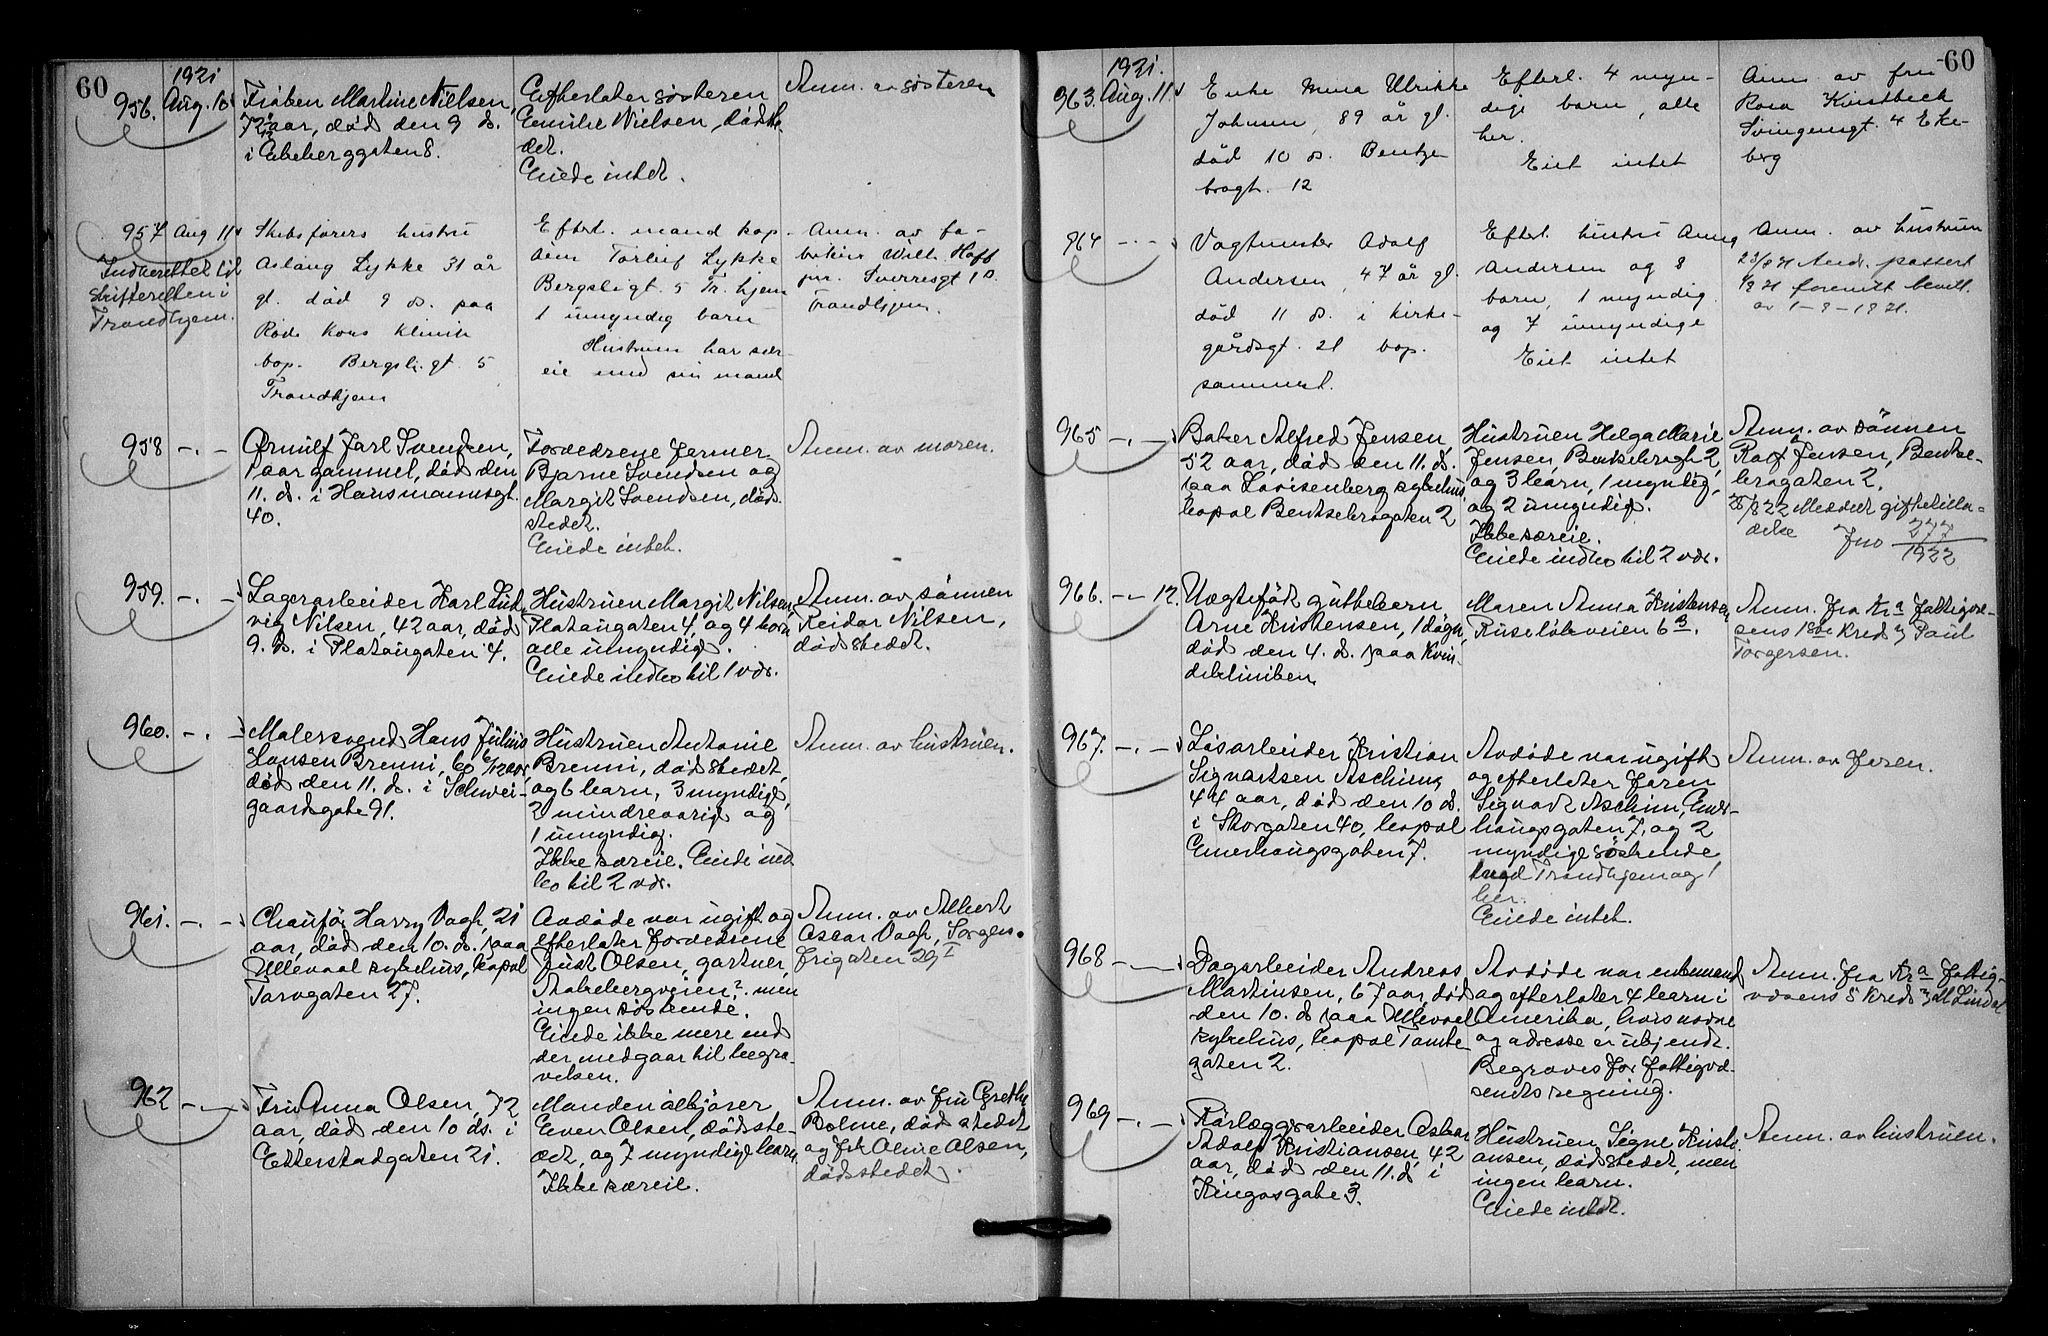 60
1921
956. Aug. 10
Frøken Martine Nielsen,
72 aar, død den 9 ds.
i Ekeberggaten 8.
Efterlater søsteren
Emilie Nielsen, dødste-
det.
Eiede intet.
Anm. av søsteren
957 Aug 11
Indberettet til
skifteretten i
Trondhjem.
Skibsførers hustru
Aslaug Lykke 31 år
gl. død 9 ds. paa
Røde Kors Klinik
bop. Bergsligt. 5
Trondhjem
Efterl. mand kap-
tein Torleif Lykke
Bergsligt. 5 Tr.hjem
1 umyndig barn
Hustruen har sær-
eie med sin mand
Anm. av fa-
brikeier Wilh. Hoff
jnr. Sverresgt 1 b.
Trondhjem.
958 -.-
Ørnulf Jarl Svendsen,
1 aar gammel, død den
11. ds. i Hausmannsgt.
40.
Forældrene Jermer
Bjarne Svendsen og
Margit Svendsen, død-
stedet.
Eiede intet.
Anm. av moren.
959. -.-
Lagerarbeider Karl Lud-
vig Nilsen, 42 aar, død
9. ds. i Platougaten 4.
Hustruen Margit Nilsen,
Platougaten 4, og 4 barn
alle umyndig.
Eiede indbo til 1 vær.
Anm. av sønnen
Reidar Nilsen,
dødstedet.
960. -.-
Malersvend Hans Julius
Hansen Brenni, 60 6/12 aar,
død den 11. ds. i Schwei-
gaardsgate 91.
Hustruen Antonie
Brenni, dødstedet,
og 6 barn, 3 myndige,
2 mindreaarig og
1 umyndig.
Ikke særeie. Eiede ind-
bo til 2 vær.
Anm. av hustruen.
961. -.-
Chauffør Harry Vagh, 21
aar, død den 10. ds. paa
Ullevaal sykehus, bopæl
Torvgaten 27.
Avdøde var ugift og
efterlater forældrene
Just Olsen, gartner,
Aakebergveien?, men
ingen søskende.
Eiede ikke mere end
der medgaar til begra-
velsen.
Anm. av Albert
Oscar Vagh, Sorgen-
frigaten 29 I
962 -.-
Fru Anna Olsen, 72
aar, død den 10 ds. i
Etterstadgaten 21.
Manden
Even Olsen, dødste-
det, og 7 myndige barn.
Ikke særeie.
Anm. av fru Grethe
Bolme, dødstedet
og frk Olene Olsen,
dødstedet.
60
1921.
963. Aug. 11
Enke Mina Ulrikke
Johnsen, 89 år gl.
død 10 ds. Bentze
brogt. 12
Efterl. 4 myn-
dige barn, alle
her.
Eiet intet
Anm. av fru
Rosa Kvistbeck
Svingensgt. 4 Eke-
berg
964 -.-
Vagtmester Adolf
Andersen, 47 år gl.
død 11 ds. i Kirke-
gårdsgt. 21 bop.
sammest.
Efterl. hustru Anna
Andersen og 8
barn, 1 myndig
og 7 umyndige
Eiet intet
Anm. av hustruen
965 -.-
Baker Alfred Jensen,
52 aar, død den 11. ds.
paa Lovisenberg sykehus,
bopæl Bentsebrogaten 2
Hustruen Helga Marie
Jensen, Bentsebrogt 2,
og 3 barn, 1 myndig,
og 2 umyndig.
Ikke særeie.
Eiede indbo til 2 vær.
Anm. av sønnen
Rolf Jensen, Bentse-
brogaten 2.
25/8 22 Meddelt giftetilla-
delse Jno 277/1922
966. -.- 12.
Uegtefødt guttebarn
Arne Kristensen, 1 døgn,
død den 4. ds. paa Kvin-
deklinikken
Moren Anna Kristensen
Ruseløkveien 6 3.
Anm. fra Kra Fattigvæ-
sens 18de Kreds v/ Paul
Torgersen.
967. -.-
Løsarbeider Kristian
Sigvartsen Aschim,
44 aar, død den 10 ds.
i Storgaten 40, bopæl
Enerhaugsgaten 7.
Avdøde var ugift
og efterlater faren
Sigvart Aschim, Ener-
haugsgaten 7, og 2
myndige søskende,
1 ved Trondhjem og 1
her.
Eiede intet.
Anm. av faren.
968 -.-
Dagarbeider Andreas
Martinsen, 67 aar, død
den 10. ds paa Ullevaal
sykehus, bopæl Tomte
gaten 2.
Avdøde var enkemand
og efterlater 4 barn i
Amerika, hvis navne
og adresse er ukjendt.
Begraves for fattigvæ-
sendts regning.
Anm. fra Kra Fattig-
væsens 5 Kreds v/
969 -.-
Rørlæggerarbeider Oskar
Adolf Kristiansen, 42
aar, død den 11. ds i
Kingosgate 3.
Hustruen Signe Kristi-
ansen, dødstedet, men
ingen barn.
Eiede intet.
Anm. av hustruen.